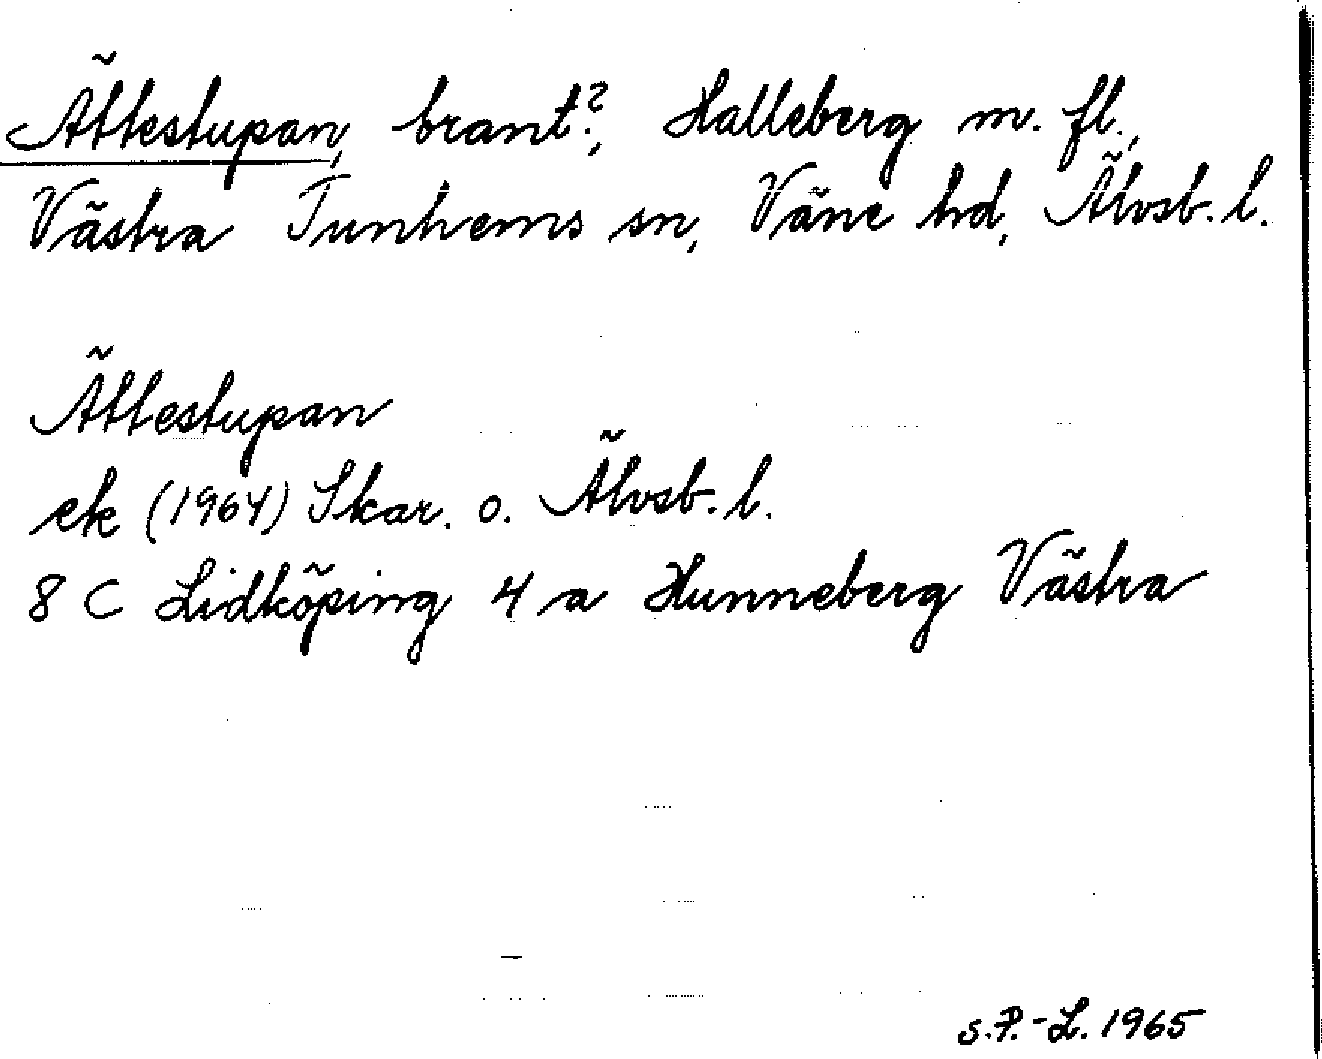 Ättestupan, brant?, Halleberg m. fl.,
Västra Tunhems sn, Väne hd, Älvsb. l.
Ättestupan
ek (1964) Skar. o. Älvsb. l.
8 C Lidköping 4 a Hunneberg Västra
S.P.-L. 1965